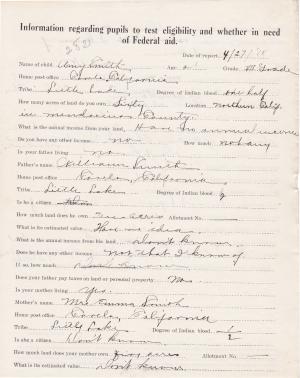 Information regarding pupils to test eligibility and whether in need
of Federal aid.
Date of report, 4/27/18
Name of child Amy Smith Age Grade
Home post office Covelo, California
Tribe Little Lake Degree of Indian blood one half
How many acres of land do you own Sixty Location northern Calif.
in mendocino County.
What is the annual income from your land, Have no annual income
Do you have any other income? no How much not any
Is your father living? no
Father's name William Smith
Home post office Covelo, California
Tribe Little Lake Degree of Indian blood
Is he a citizen
How much land does he own? acres Allotment No.
What is its estimated value? Have no idea
What is the annual income from his land, Don't know
Does he have any other income not that I know of
If so, how much
Does your father pay taxes on land or personal property? No
Is your mother living? Yes
Mother's name Mrs Emma Smith
Home post office Covelo, California
Tribe Little Lake Degree of Indian blood 1/2
Is she a citizen Don't know
How much land does your mother own acres Allotment No.
What is its estimated value? Don't know